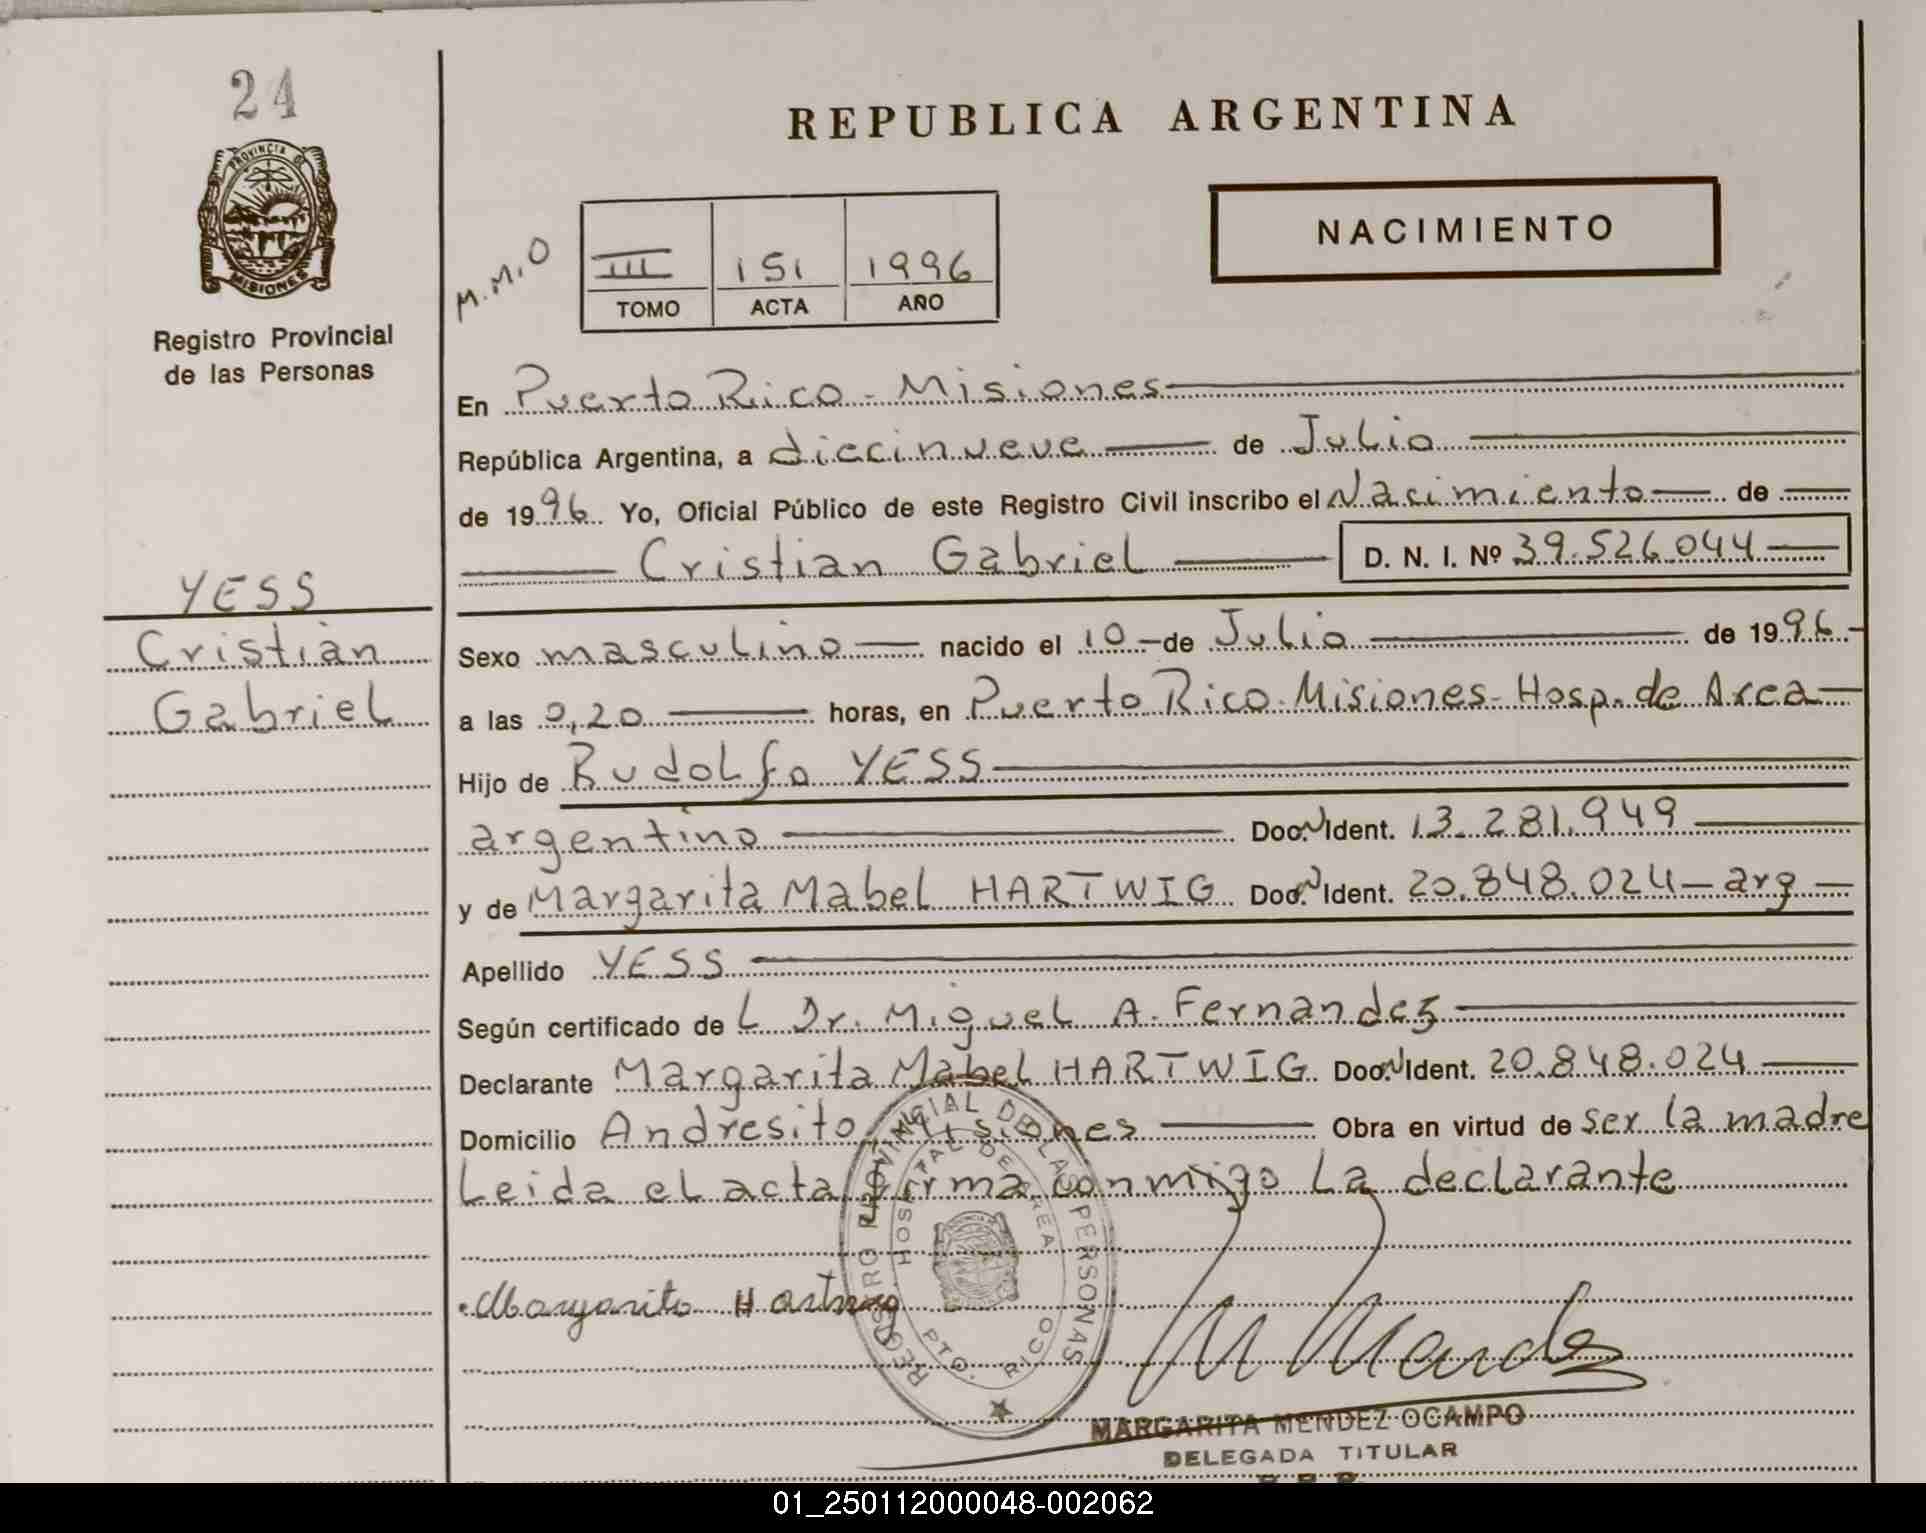 24
REPUBLICA ARGENTINA
PROVINCIA DE
MISIONES
Registro Provincial
de las Personas
M.M.O
III 151 1996
TOMO ACTA AÑO
NACIMIENTO
En Puerto Rico - Misiones
República Argentina, a diecinueve de Julio
de 1996 Yo, Oficial Público de este Registro Civil inscribo el Nacimiento de
Cristian Gabriel D. N. I. Nº 39.526.044
YESS
Cristian
Gabriel
Sexo masculino nacido el 10 de Julio de 1996
a las 0,20 horas, en Puerto Rico. Misiones - Hosp. de Area
Hijo de Rudolfo YESS
argentino Doc. Ident. 13.281.949
y de Margarita Mabel HARTWIG Doc. Ident. 20.848.024 - arg
Apellido YESS
Según certificado de L Dr. Miguel A. Fernandez
Declarante Margarita Mabel HARTWIG Doc. Ident. 20.848.024
Domicilio Andresito Misiones Obra en virtud de ser la madre
Leida el acta firma conmigo La declarante
REGISTRO PROVINCIAL DE LAS PERSONAS
HOSPITAL DE AREA
PTO. RICO
Margarita Hartwig
M Mendez
MARGARITA MENDEZ OCAMPO
DELEGADA TITULAR
01_250112000048-002062